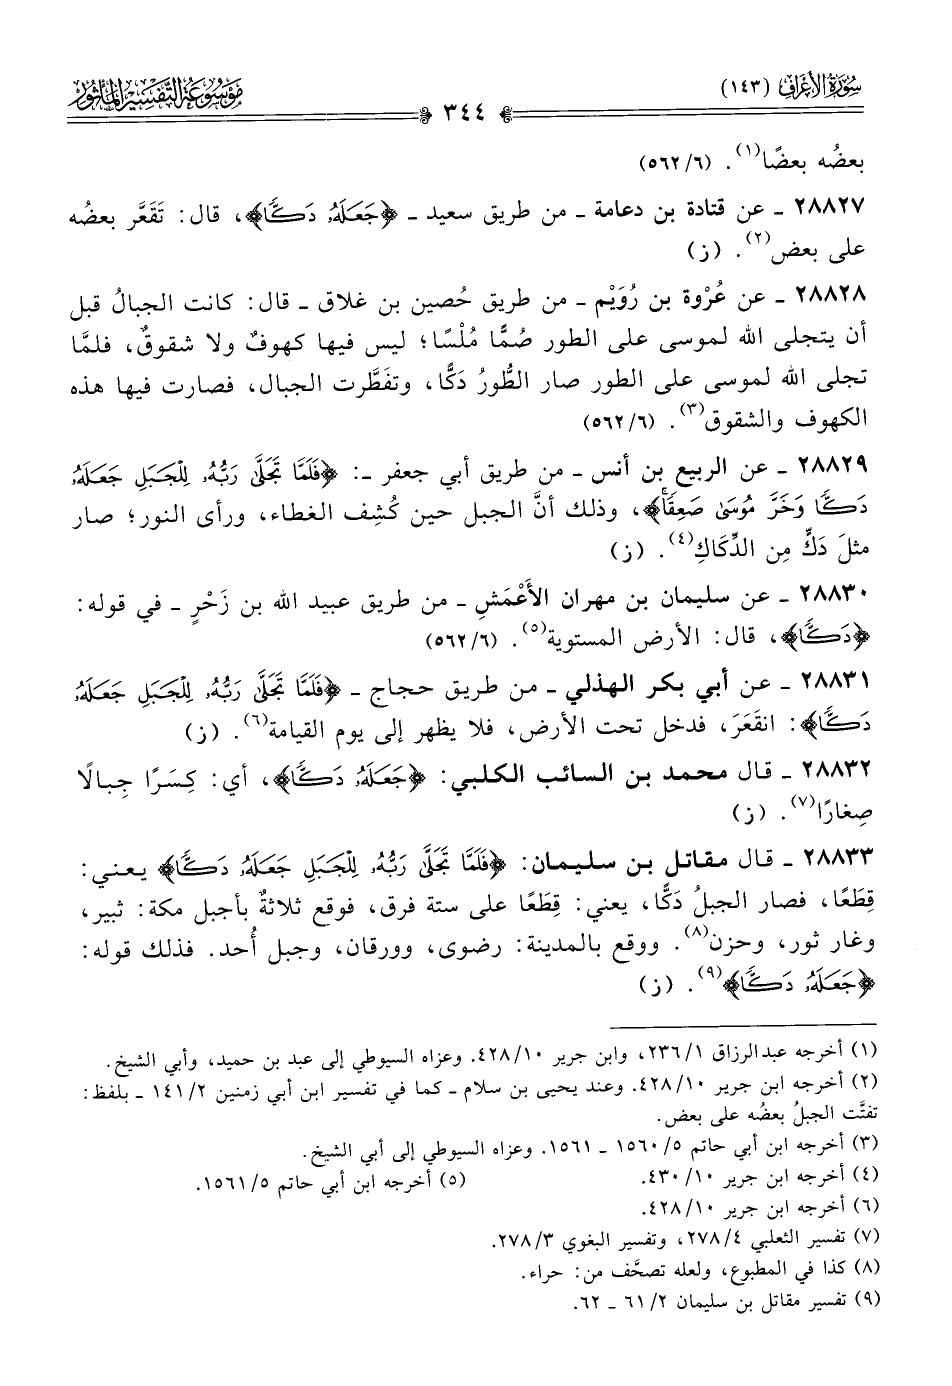 سُورَةُ الأَعْرَافِ (١٤٣)
٣٤٤
مَوْسُوعَةُ التَّفْسِيرِ المَأْثُورِ
بعضُه بعضًا(١). (٥٦٢/٦)
٢٨٨٢٧ ـ عن قتادة بن دعامة ـ من طريق سعيد ـ ﴿جَعَلَهُۥ دَكًّا﴾، قال: تَقَعَّر بعضُه
على بعض(٢). (ز)
٢٨٨٢٨ ـ عن عُرْوة بن رُوَيْم ـ من طريق حُصين بن غلاق ـ قال: كانت الجبالُ قبل
أن يتجلى الله لموسى على الطور صُمًّا مُلْسًا؛ ليس فيها كهوفٌ ولا شقوقٌ، فلمَّا
تجلى الله لموسى على الطور صار الطُّورُ دَكًّا، وتفَطَّرت الجبال، فصارت فيها هذه
الكهوف والشقوق(٣). (٥٦٢/٦)
٢٨٨٢٩ ـ عن الربيع بن أنس ـ من طريق أبي جعفر ـ: ﴿فَلَمَّا تَجَلَّىٰ رَبُّهُۥ لِلْجَبَلِ جَعَلَهُۥ
دَكًّا وَخَرَّ مُوسَىٰ صَعِقًا﴾، وذلك أنَّ الجبل حين كُشِف الغطاء، ورأى النور؛ صار
مثلَ دَكٍّ مِن الدِّكَاكِ(٤). (ز)
٢٨٨٣٠ ـ عن سليمان بن مهران الأَعْمَشِ ـ من طريق عبيد الله بن زَحْرٍ ـ في قوله:
﴿دَكًّا﴾، قال: الأرض المستوية(٥). (٥٦٢/٦)
٢٨٨٣١ ـ عن أبي بكر الهذلي ـ من طريق حجاج ـ ﴿فَلَمَّا تَجَلَّىٰ رَبُّهُۥ لِلْجَبَلِ جَعَلَهُۥ
دَكًّا﴾: انقَعَرَ، فدخل تحت الأرض، فلا يظهر إلى يوم القيامة(٦). (ز)
٢٨٨٣٢ ـ قال محمد بن السائب الكلبي: ﴿جَعَلَهُۥ دَكًّا﴾، أي: كِسَرًا جِبالًا
صِغارًا(٧). (ز)
٢٨٨٣٣ ـ قال مقاتل بن سليمان: ﴿فَلَمَّا تَجَلَّىٰ رَبُّهُۥ لِلْجَبَلِ جَعَلَهُۥ دَكًّا﴾ يعني:
قِطَعًا، فصار الجبلُ دَكًّا، يعني: قِطَعًا على ستة فرق، فوقع ثلاثةٌ بأجبل مكة: ثبير،
وغار ثور، وحزن(٨). ووقع بالمدينة: رضوى، وورقان، وجبل أُحد. فذلك قوله:
﴿جَعَلَهُۥ دَكًّا﴾(٩). (ز)
(١) أخرجه عبدالرزاق ٢٣٦/١، وابن جرير ٤٢٨/١٠. وعزاه السيوطي إلى عبد بن حميد، وأبي الشيخ.
(٢) أخرجه ابن جرير ٤٢٨/١٠. وعند يحيى بن سلام ـ كما في تفسير ابن أبي زمنين ١٤١/٢ ـ بلفظ:
تفتَّت الجبلُ بعضُه على بعض.
(٣) أخرجه ابن أبي حاتم ١٥٦٠/٥ ـ ١٥٦١. وعزاه السيوطي إلى أبي الشيخ.
(٤) أخرجه ابن جرير ٤٣٠/١٠. (٥) أخرجه ابن أبي حاتم ١٥٦١/٥.
(٦) أخرجه ابن جرير ٤٢٨/١٠.
(٧) تفسير الثعلبي ٢٧٨/٤، وتفسير البغوي ٢٧٨/٣.
(٨) كذا في المطبوع، ولعله تصحَّف من: حراء.
(٩) تفسير مقاتل بن سليمان ٦١/٢ ـ ٦٢.